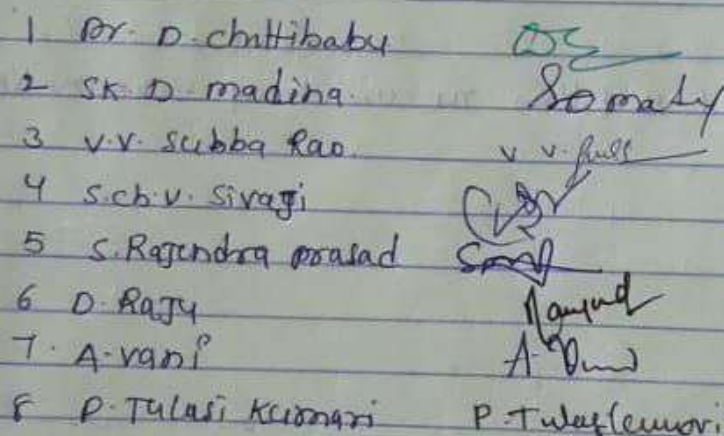 1 Dr. D. chittibabu
2 SK D. madina.
3 V.V. Subba Rao.
4 S.ch.v. Sivaji
5 S. Rajendra prasad
6 D. Raju
7. A. vani
8 P. Tulasi Kumari P. Tulasi